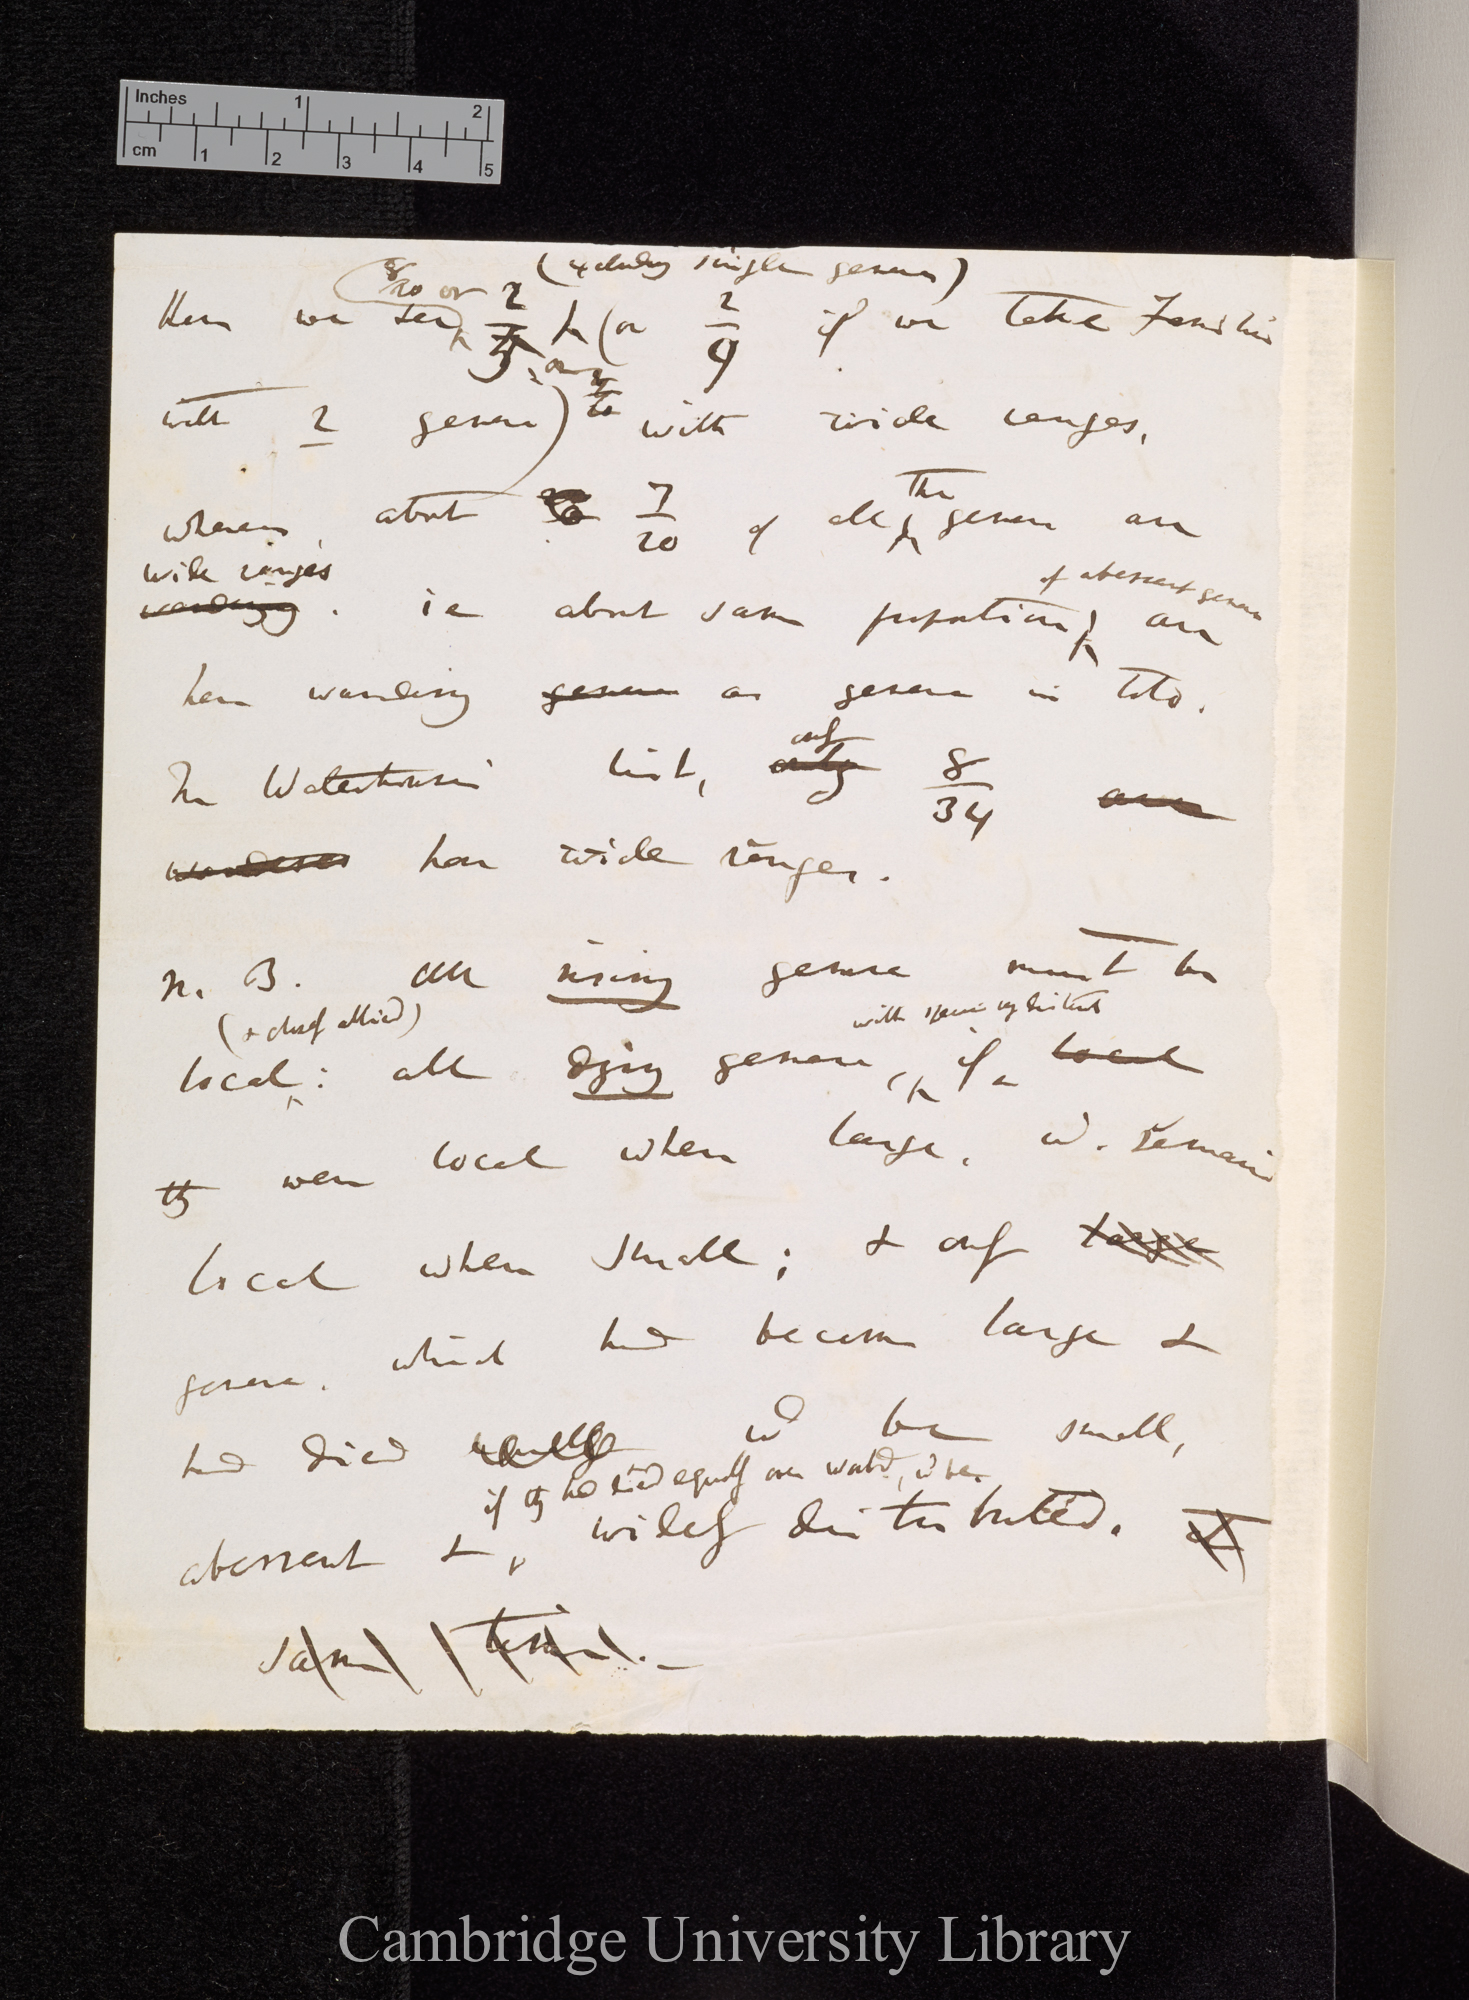 Inches 1 2
cm 1 2 3 4 5
(excluding single genera)
8/20 or
Here we see 2/7 (or 2/9 if we take Families
with 2 genera) with wide ranges,
whereas about 7/20 of all the genera are
wide ranges
wandering . ie about same proportion of aberrant genera are
here wandering genera as genera in toto.
In Waterhouse's list, only only 8/34 are
wanderers have wide ranges.
N. B. All rising genera must be
(& closely allied) with species ay distinct
local : all dying genera, if local
they were local when large, wd. remain
local when small; & only large
genera, which had become large &
had died wd be small,
if they had died equally over world, wd be
aberrant & widely distributed. It
same
Cambridge University Library